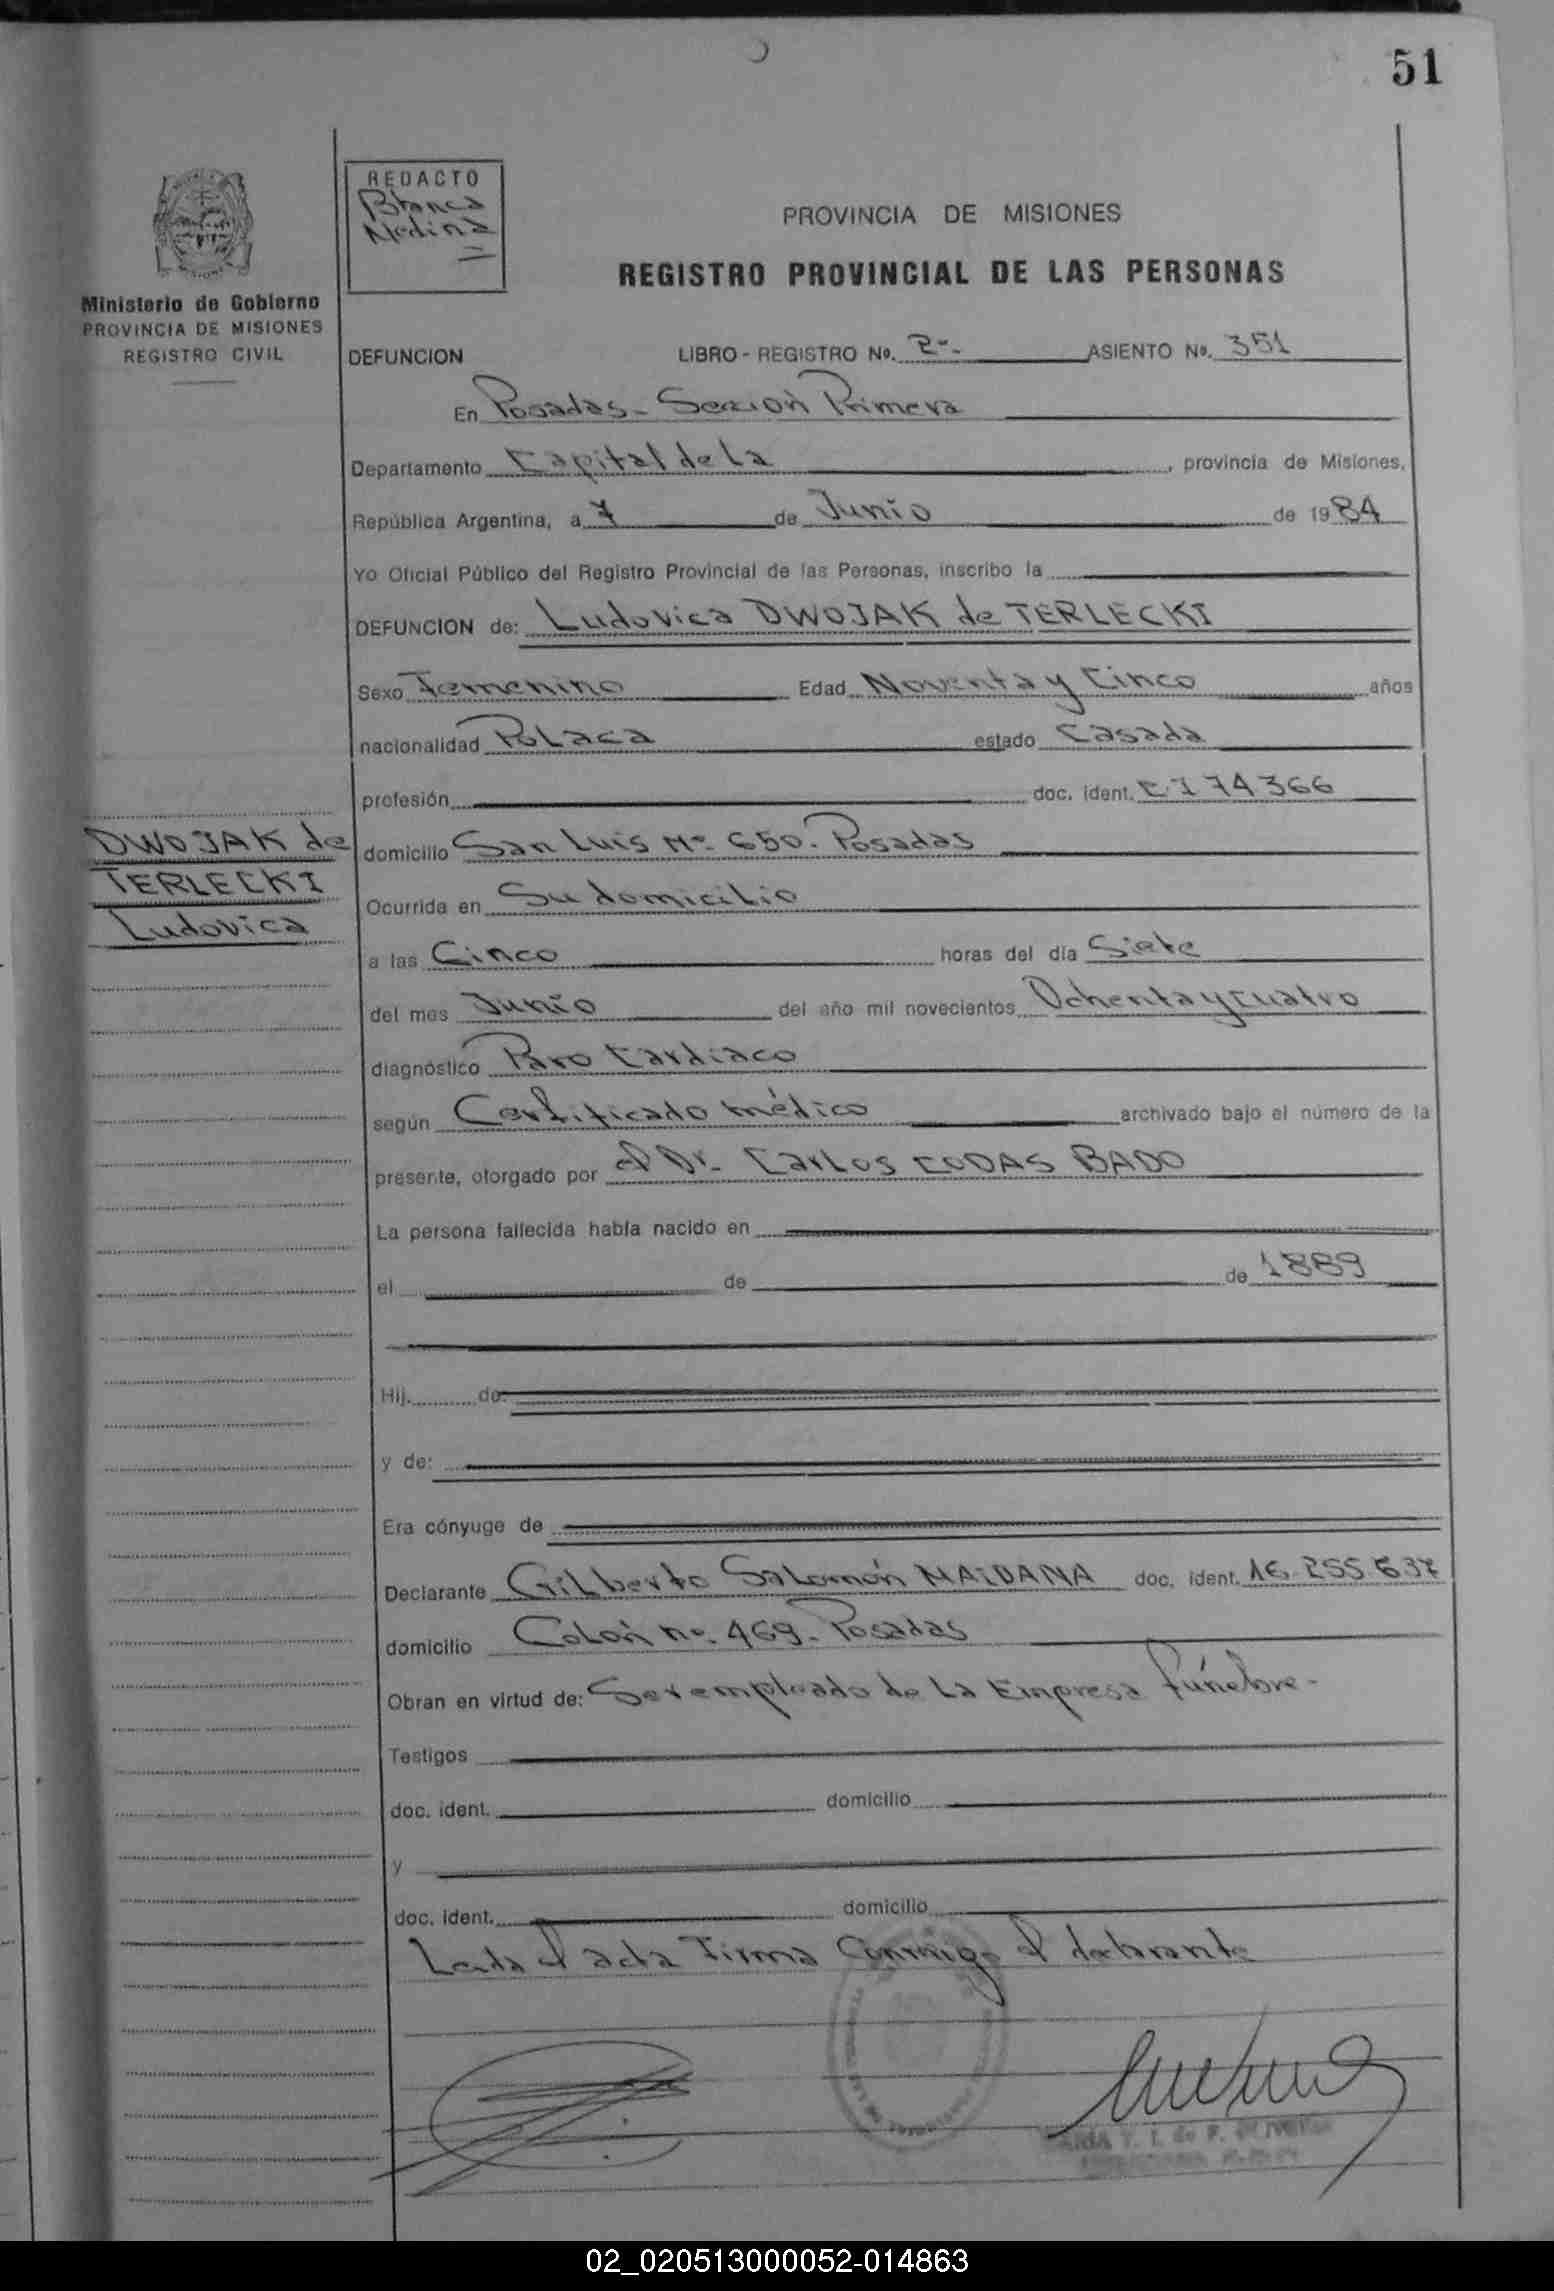 51
REDACTO
Blanca
Medina
PROVINCIA DE MISIONES
REGISTRO PROVINCIAL DE LAS PERSONAS
Ministerio de Gobierno
PROVINCIA DE MISIONES
REGISTRO CIVIL
DEFUNCION LIBRO - REGISTRO No. 2º- ASIENTO No. 351
En Posadas - Sección Primera
Departamento Capital de La, provincia de Misiones,
República Argentina, a 7 de Junio de 1984
Yo Oficial Público del Registro Provincial de las Personas, inscribo la
DEFUNCION de: Ludovica DWOJAK de TERLECKI
Sexo Femenino Edad Noventa y Cinco años
nacionalidad Polaca estado Casada
profesión doc. ident. C.I 74366
DWOJAK de
TERLECKI
Ludovica
domicilio San Luis Nº 650. Posadas
Ocurrida en Su domicilio
a las Cinco horas del día Siete
del mes Junio del año mil novecientos Ochenta y cuatro
diagnóstico Paro Cardiaco
según Certificado médico archivado bajo el número de la
presente, otorgado por el Dr. Carlos CODAS BADO
La persona fallecida había nacido en
el de de 1889
Hij. de:
y de:
Era cónyuge de
Declarante Gilberto Salomón MAIDANA doc. ident. 16.255.637
domicilio Colón nº. 469. Posadas
Obran en virtud de: Ser empleado de La Empresa fúnebre -
Testigos
doc. ident. domicilio
y
doc. ident. domicilio
Leida el acta Firma Conmigo el declarante
02_020513000052-014863